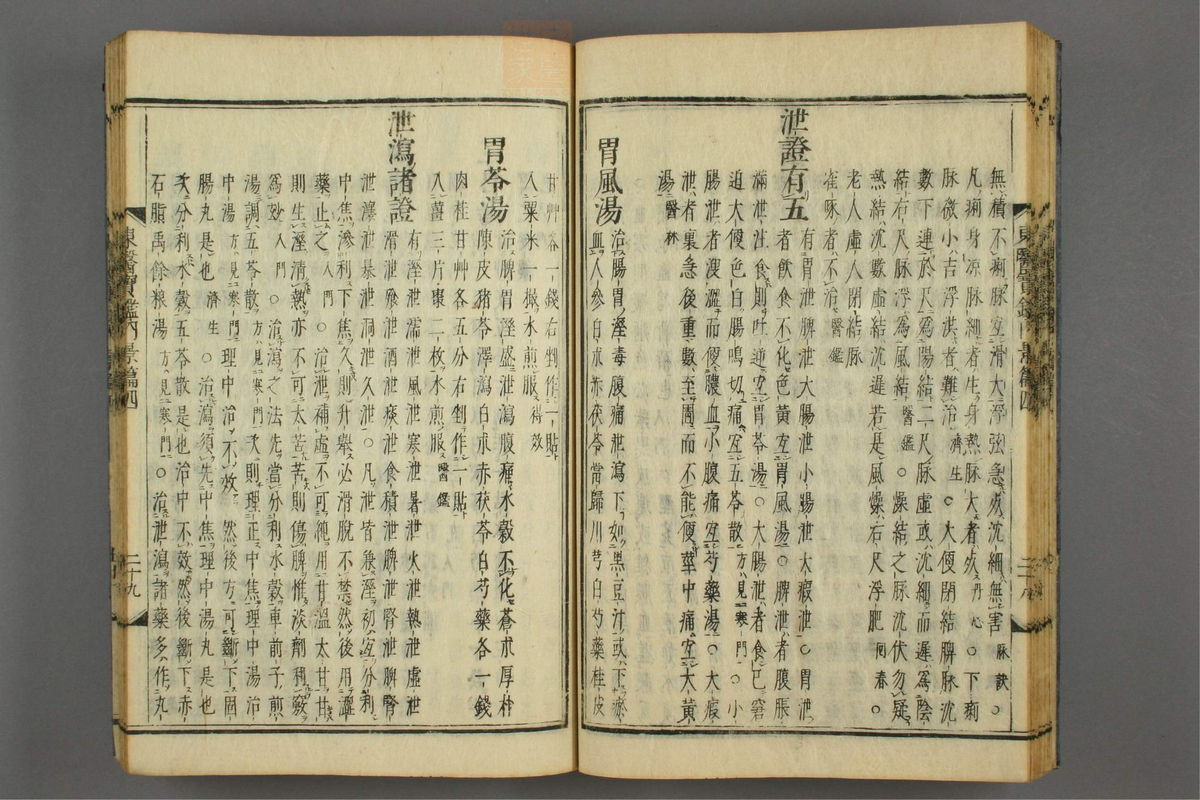 無積不痢脉宜滑大浮弦急死沈細無害脉訣○
凡痢身涼脉細者生身熱脉大者死丹心○下痢
脉微小吉浮洪者難治濟生○大便閉結脾脉沈
數下連於尺爲陽結二尺脉虛或沈細而遲爲陰
結右尺脉浮爲風結醫鑑○燥結之脉沈伏勿疑
熱結沈數虛結沈遲若是風燥右尺浮肥回春○
老人虛人閉結脉
雀啄者不治醫鑑
泄證有五
有胃泄脾泄大腸泄小腸泄大瘕泄○胃泄
者飮食不化色黃宜胃風湯○脾泄者腹脹
滿泄注食則吐逆宜胃苓湯○大腸泄者食已窘
迫大便色白腸鳴切痛宜五苓散方見寒門○小
腸泄者溲澁而便膿血小腹痛宜芍藥湯○大瘕
泄者裏急後重數至圊而不能便莖中痛宜大黃
湯醫林
胃風湯
治腸胃溼毒腹痛泄瀉下如黑豆汁或下瘀
血人參白朮赤茯苓當歸川芎白芍藥桂皮
甘艸各一錢右剉作一貼
入粟米一撮水煎服得效
胃苓湯
治脾胃溼盛泄瀉腹痛水穀不化蒼朮厚朴
陳皮猪苓澤瀉白朮赤茯苓白芍藥各一錢
肉桂甘艸各五分右剉作一貼
入薑三片棗二枚水煎服醫鑑
泄瀉諸證
有溼泄濡泄風泄寒泄暑泄火泄熱泄虛泄
滑泄飱泄酒泄痰泄食積泄脾泄腎泄脾腎
泄瀼泄暴泄洞泄久泄○凡泄皆兼溼初宜分利
中焦滲利下焦久則升擧必滑脫不禁然後用澁
藥止之入門○治泄補虛不可純用甘溫太甘
則生溼淸熱亦不可太苦苦則傷脾惟淡劑利竅
爲妙入門○治瀉之法先當分利水穀車前子煎
湯調五苓散方見寒門次則理正中焦理中湯治
中湯方見寒門理中治不效然後方可斷下固
腸丸是也濟生○治瀉須先中焦理中湯丸是也
次分利水穀五苓散是也治中不效然後斷下赤
石脂禹餘粮湯方見寒門○治泄瀉諸藥多作丸
東醫寶鑑內景篇四
二十九
東醫寶鑑內景篇四